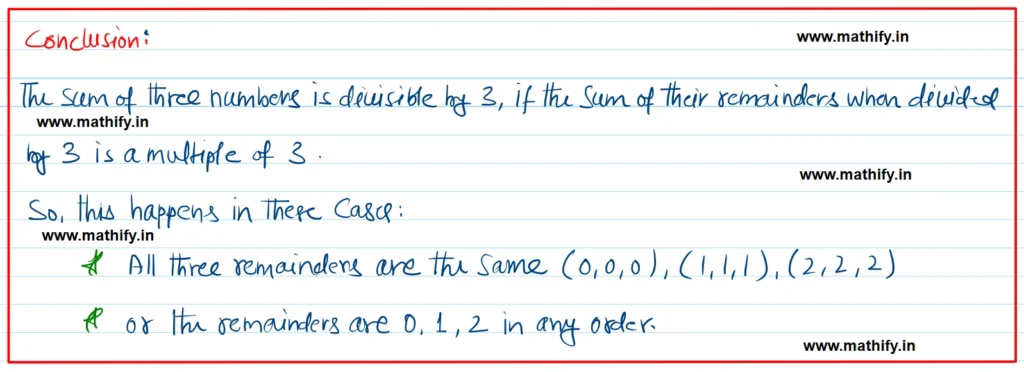 Conclusion:
www.mathify.in
The sum of three numbers is divisible by 3, if the sum of their remainders when divided
www.mathify.in
by 3 is a multiple of 3.
www.mathify.in
So, this happens in these case:
www.mathify.in
All three remainders are the same (0,0,0), (1,1,1), (2,2,2)
or the remainders are 0, 1, 2 in any order.
www.mathify.in